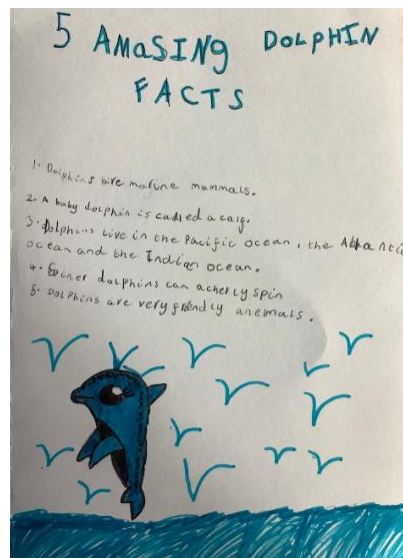 5 AMaSING DOLPHIN
FACTS
1. Dolphins are marine mammals.
2. A baby dolphin is called a calf.
3. Dolphins Live in the Pacific ocean, the Atlantic
ocean and the Indian ocean.
4. Spiner dolphins can acherly spin
5. Dolphins are very friendly anemals.